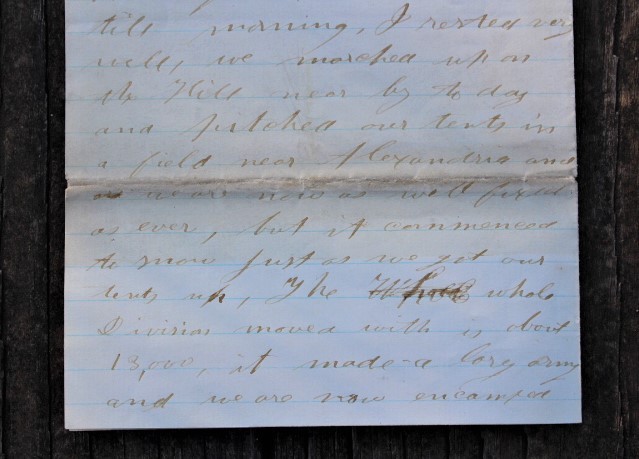 till morning, I rested very
well, we marched up on
th Hill near by to day
and pitched our tents in
a field near Alexandria and
we are now as well fixed
as ever, but it commenced
to snow just as we got our
tents up, The whole
Division moved with is about
13,000, it made a larg army
and we are now encamped